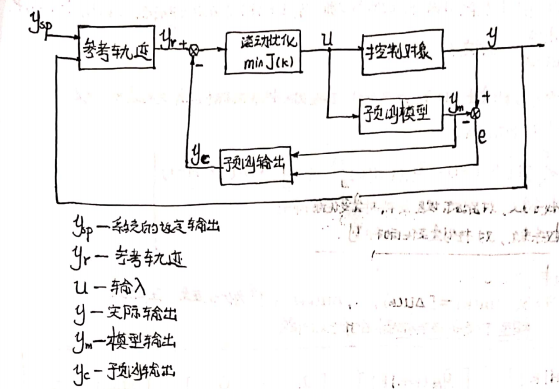 ysp
参考轨迹
yr + -
滚动优化
minJ(k)
u
控制对象
y
预测模型
ym
+
-
e
预测输出
yc
ysp—系统的设定输出
yr—参考轨迹
u—输入
y—实际输出
ym—模型输出
yc—预测输出